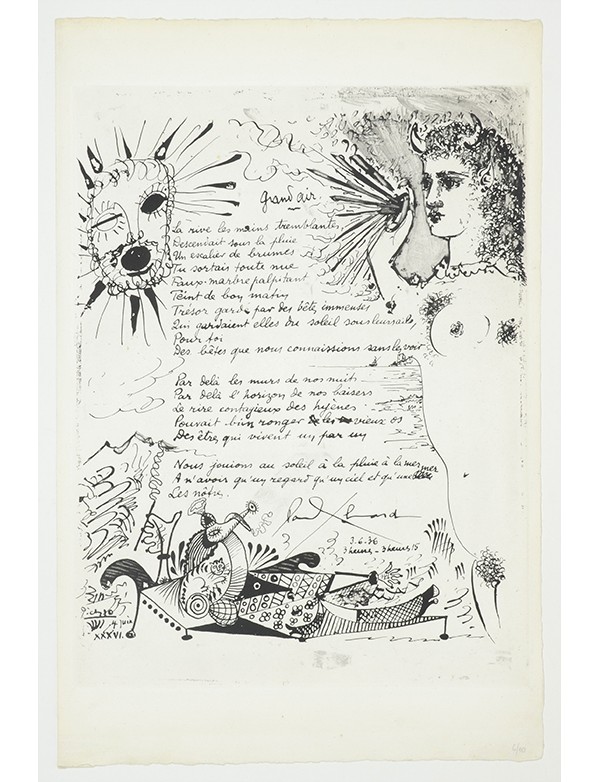 Grand air.
La rive les mains tremblantes
Descendait sous la pluie
Un escalier de brumes
Tu sortais toute nue
Faux marbre palpitant
Teint de bon matin
Trésor gardé par des bêtes immenses
Qui gardaient elles du soleil sous leurs ailes,
Pour toi
Des bêtes que nous connaissions sans les voir
Par delà les murs de nos nuits
Par delà l'horizon de nos baisers
Le rire contagieux des hyènes
Pouvait bien ronger les vieux os
Des êtres qui vivent un par un
Nous jouions au soleil à la pluie à la mer
A n'avoir qu'un regard qu'un ciel et qu'une mer
Les nôtres.
Paul Eluard
3.6.36
3 heures - 3 heures 15
Picasso
4 juin
XXXVI.